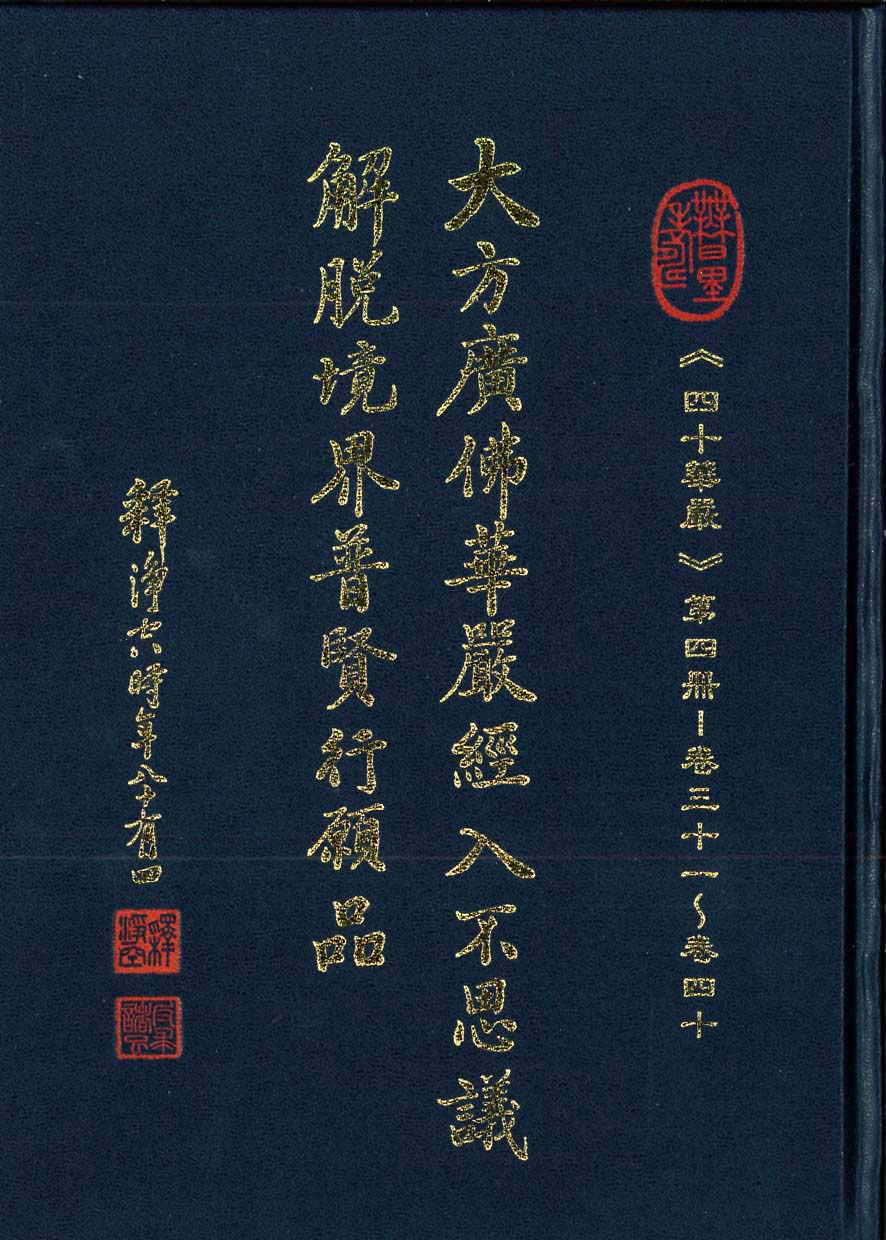 《四十華嚴》第四冊－卷三十一～卷四十
大方廣佛華嚴經 入不思議
解脫境界普賢行願品
釋淨空時年八十有四
釋淨空